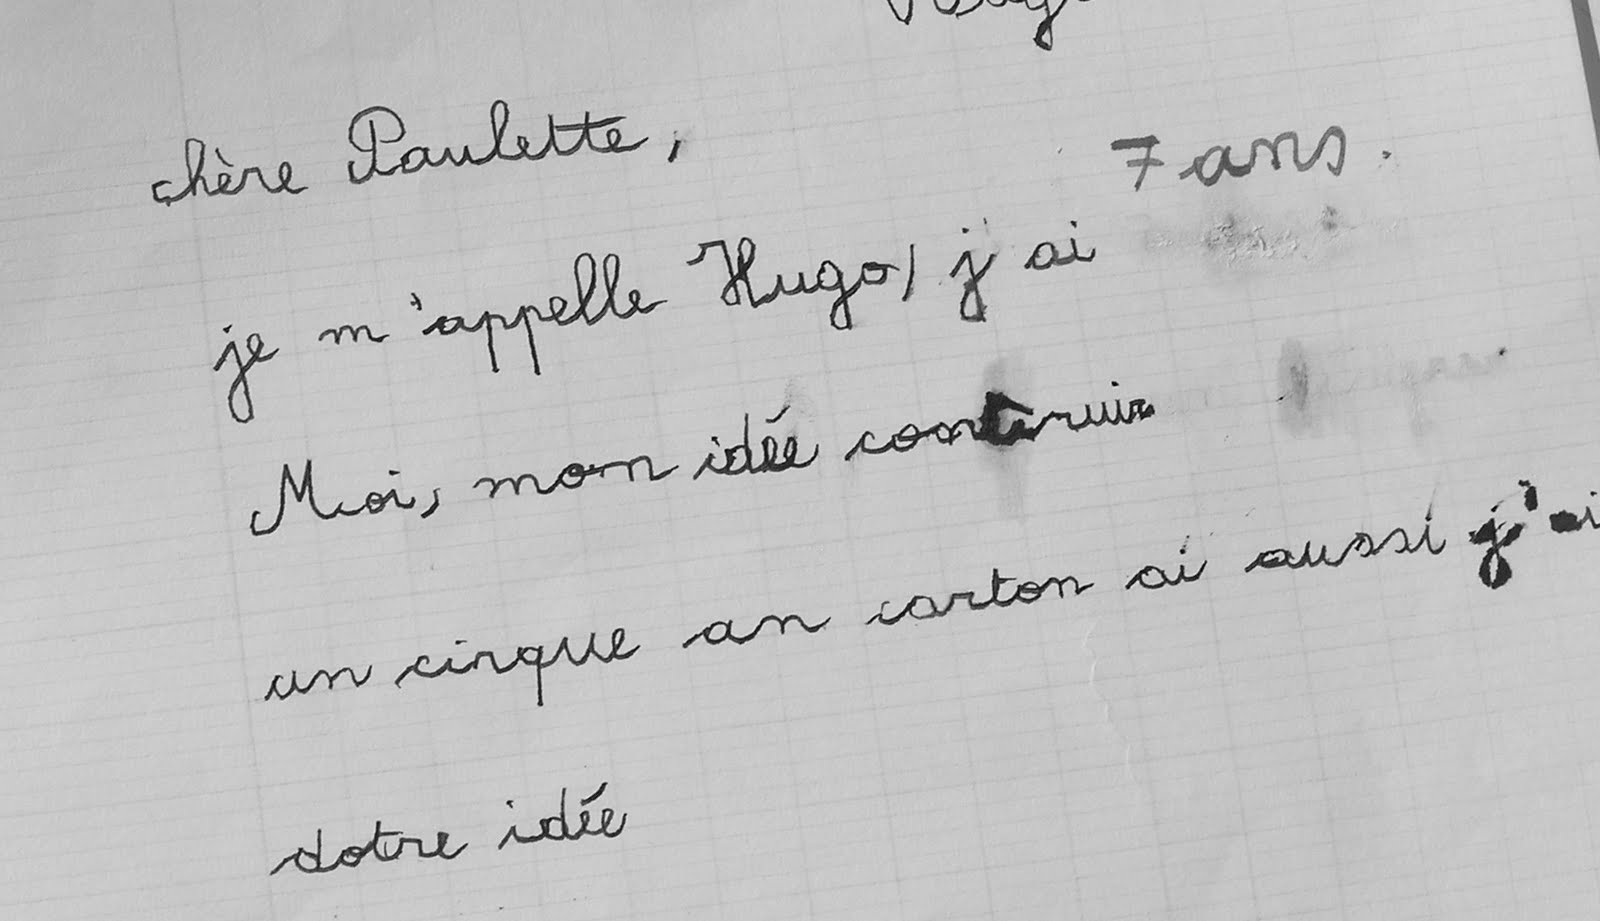 chère Paulette,
je m'appelle Hugo, j'ai 7 ans.
Moi, mon idée contruir
un cirque an carton ai aussi j'ai
dotre idée